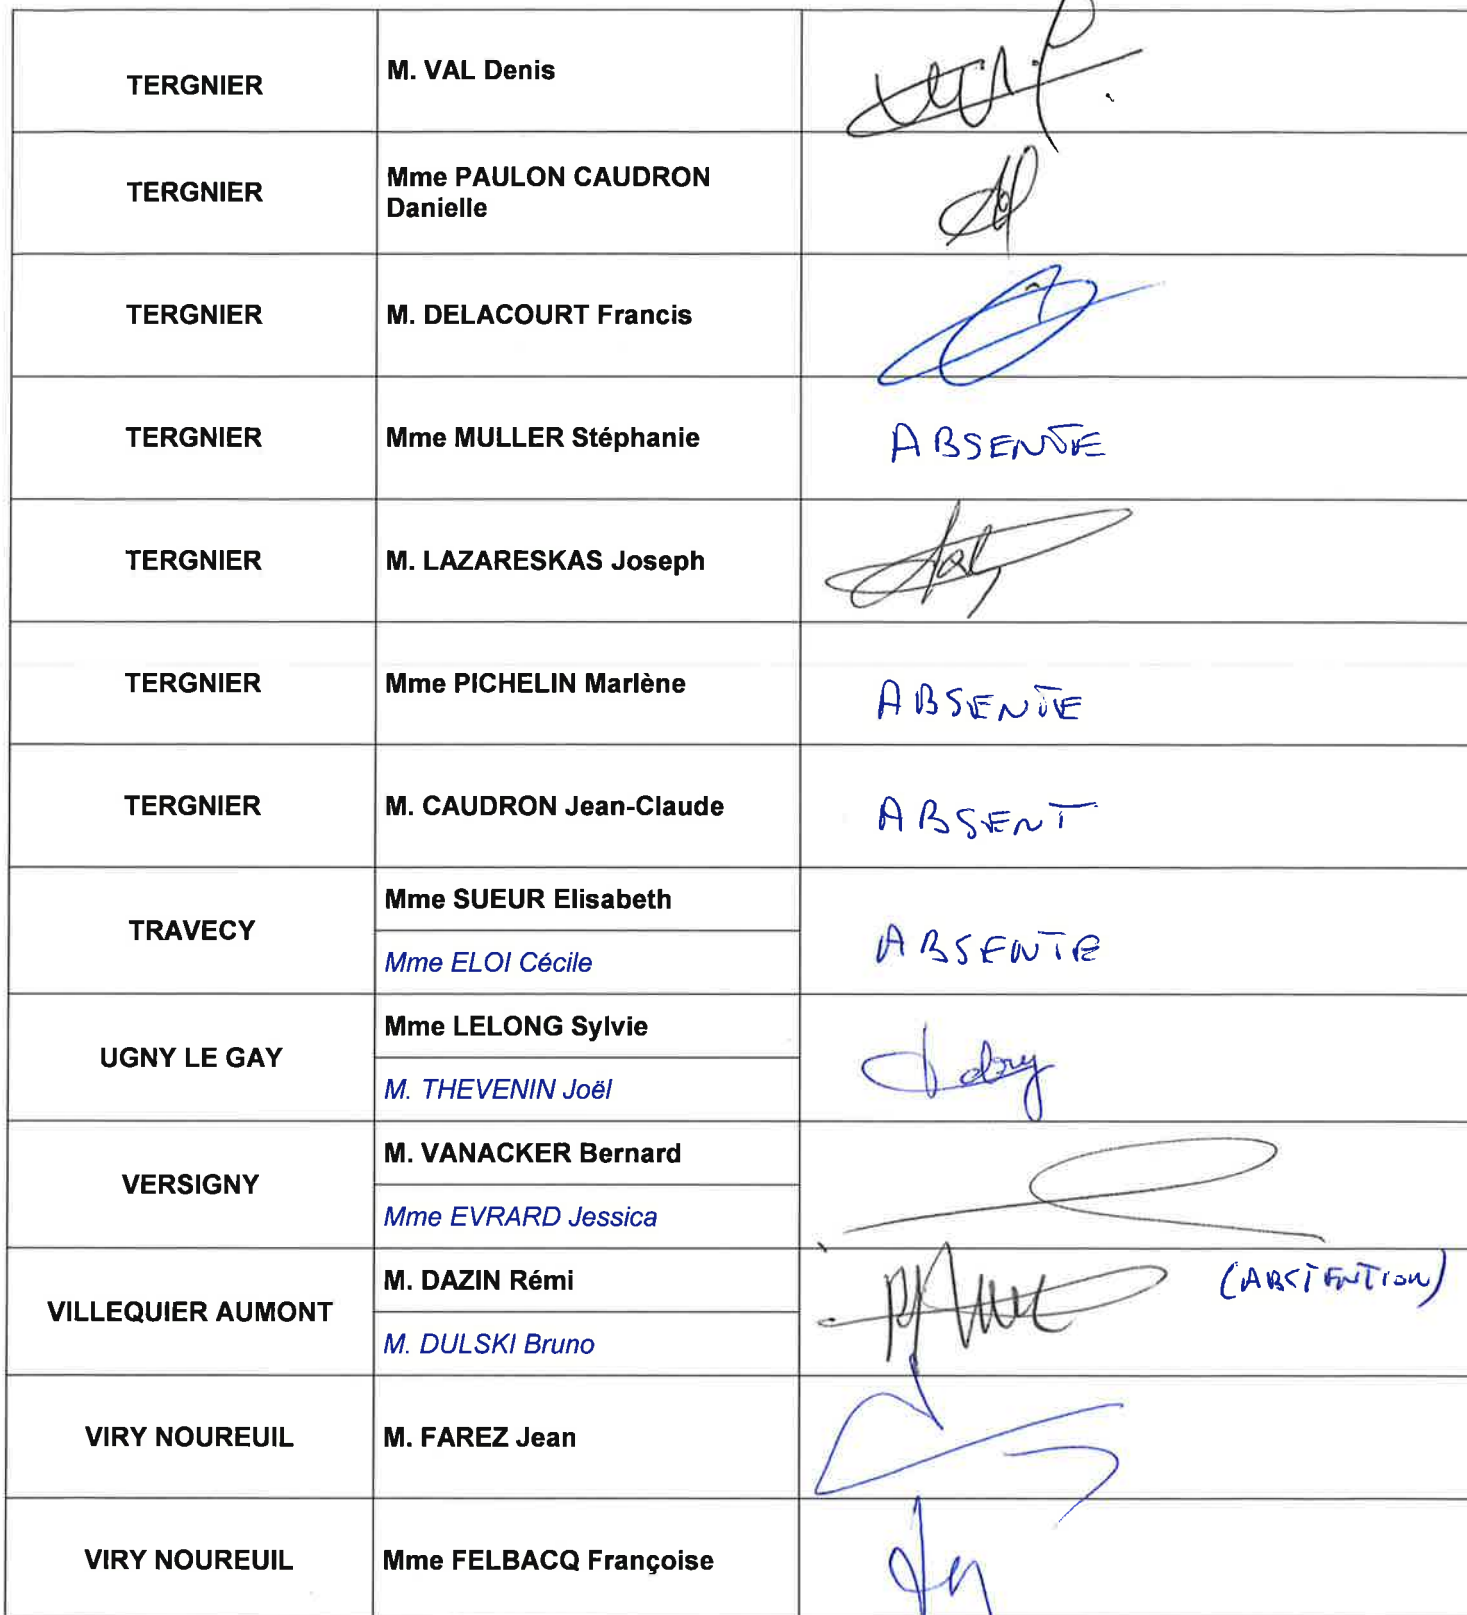 TERGNIER
M. VAL Denis
TERGNIER
Mme PAULON CAUDRON
Danielle
TERGNIER
M. DELACOURT Francis
TERGNIER
Mme MULLER Stéphanie
ABSENTE
TERGNIER
M. LAZARESKAS Joseph
TERGNIER
Mme PICHELIN Marlène
ABSENTE
TERGNIER
M. CAUDRON Jean-Claude
ABSENT
TRAVECY
Mme SUEUR Elisabeth
Mme ELOI Cécile
ABSENTE
UGNY LE GAY
Mme LELONG Sylvie
M. THEVENIN Joël
VERSIGNY
M. VANACKER Bernard
Mme EVRARD Jessica
VILLEQUIER AUMONT
M. DAZIN Rémi
M. DULSKI Bruno
(ABSTENTION)
VIRY NOUREUIL
M. FAREZ Jean
VIRY NOUREUIL
Mme FELBACQ Françoise